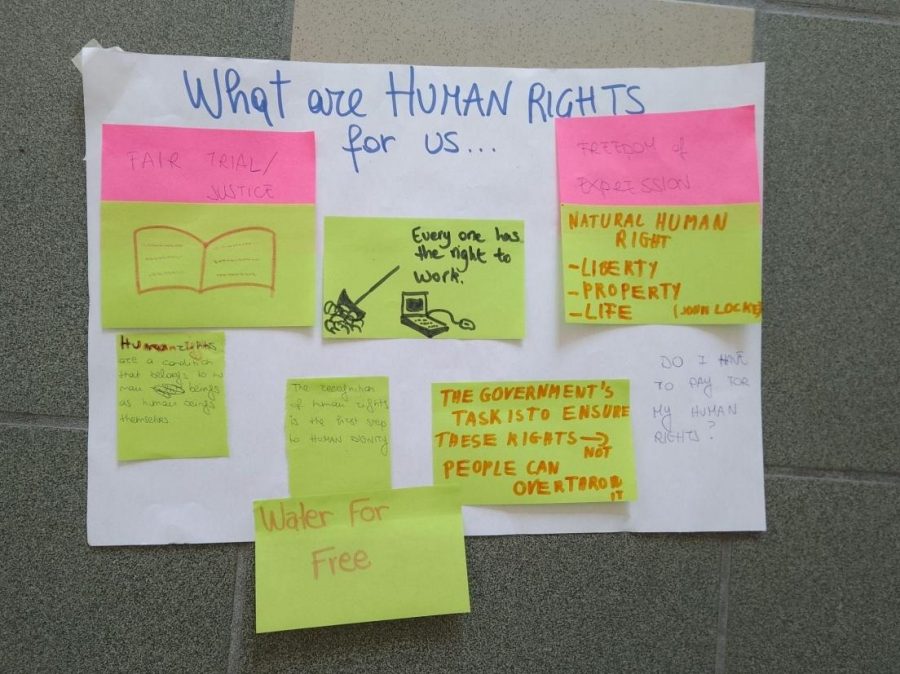 What are HUMAN RIGHTS
for us...
FAIR TRIAL/
JUSTICE
FREEDOM of
EXPRESSION
Every one has
the right to
work.
NATURAL HUMAN
RIGHT
-LIBERTY
-PROPERTY
-LIFE (JOHN LOCKE)
Human rights
are a condition
that belongs to hu
man beings
as human beings
themselves
The recognition
of human rights
is the first step
to HUMAN DIGNITY
THE GOVERNMENT'S
TASK IS TO ENSURE
THESE RIGHTS →
NOT
PEOPLE CAN
OVERTHROW
IT
DO I HAVE
TO PAY FOR
MY HUMAN
RIGHTS?
Water For
Free